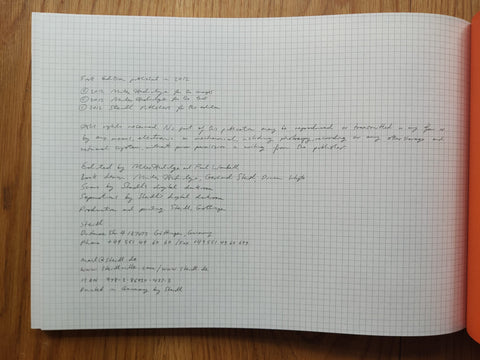 First edition published in 2012
© 2012 Miles Aldridge for the images
© 2012 Miles Aldridge for the text
© 2012 Steidl Publishers for the edition
All rights reserved. No part of this publication may be reproduced or transmitted in any form or
by any means, electronic or mechanical, including photocopy, recording or any other storage and
retrieval system, without prior permission in writing from the publisher.
Edited by Miles Aldridge at Paul
Book design: Miles Aldridge, Gerhard Steidl,
Scans by Steidl's digital darkroom
Separations by Steidl's digital darkroom
Production and printing: Steidl, Göttingen
Steidl
Düstere Str. 4 / 37073 Göttingen, Germany
Phone +49 551 49 60 60 / Fax +49 551 49 60 649
mail@steidl.de
www.steidlville.com / www.steidl.de
ISBN
Printed in Germany by Steidl